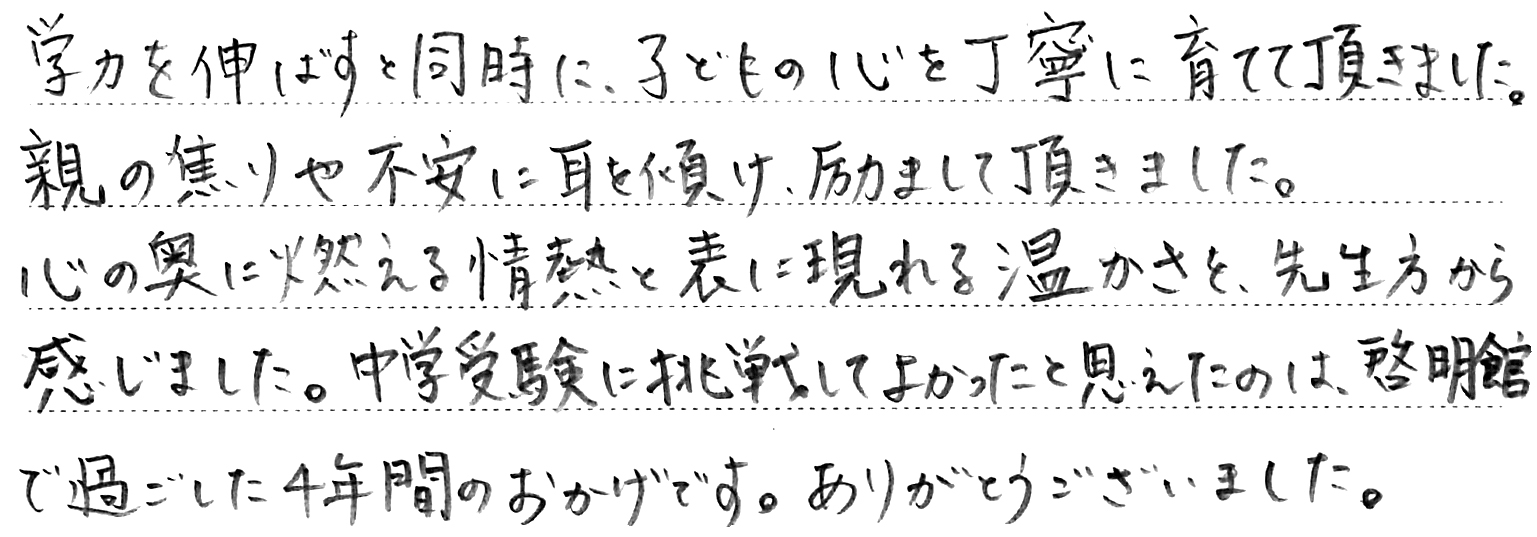 学力を伸ばすと同時に、子どもの心を丁寧に育てて頂きました。
親の焦りや不安に耳を傾け、励まして頂きました。
心の奥に燃える情熱と表に現れる温かさを、先生方から
感じました。中学受験に挑戦してよかったと思えたのは、啓明館
で過ごした4年間のおかげです。ありがとうございました。